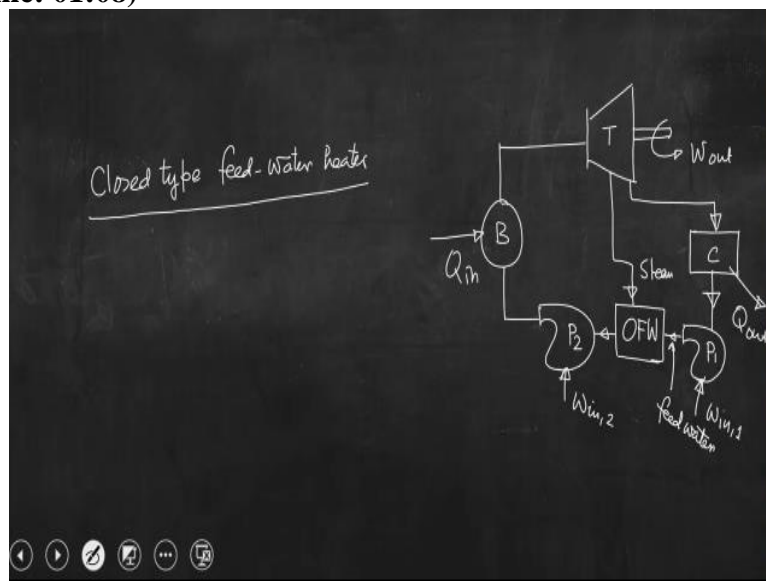 Closed type feed-water heater
T
Wout
B
Qin
C
Steam
Qout
OFW
P2
P1
Win,2
feed water
Win,1